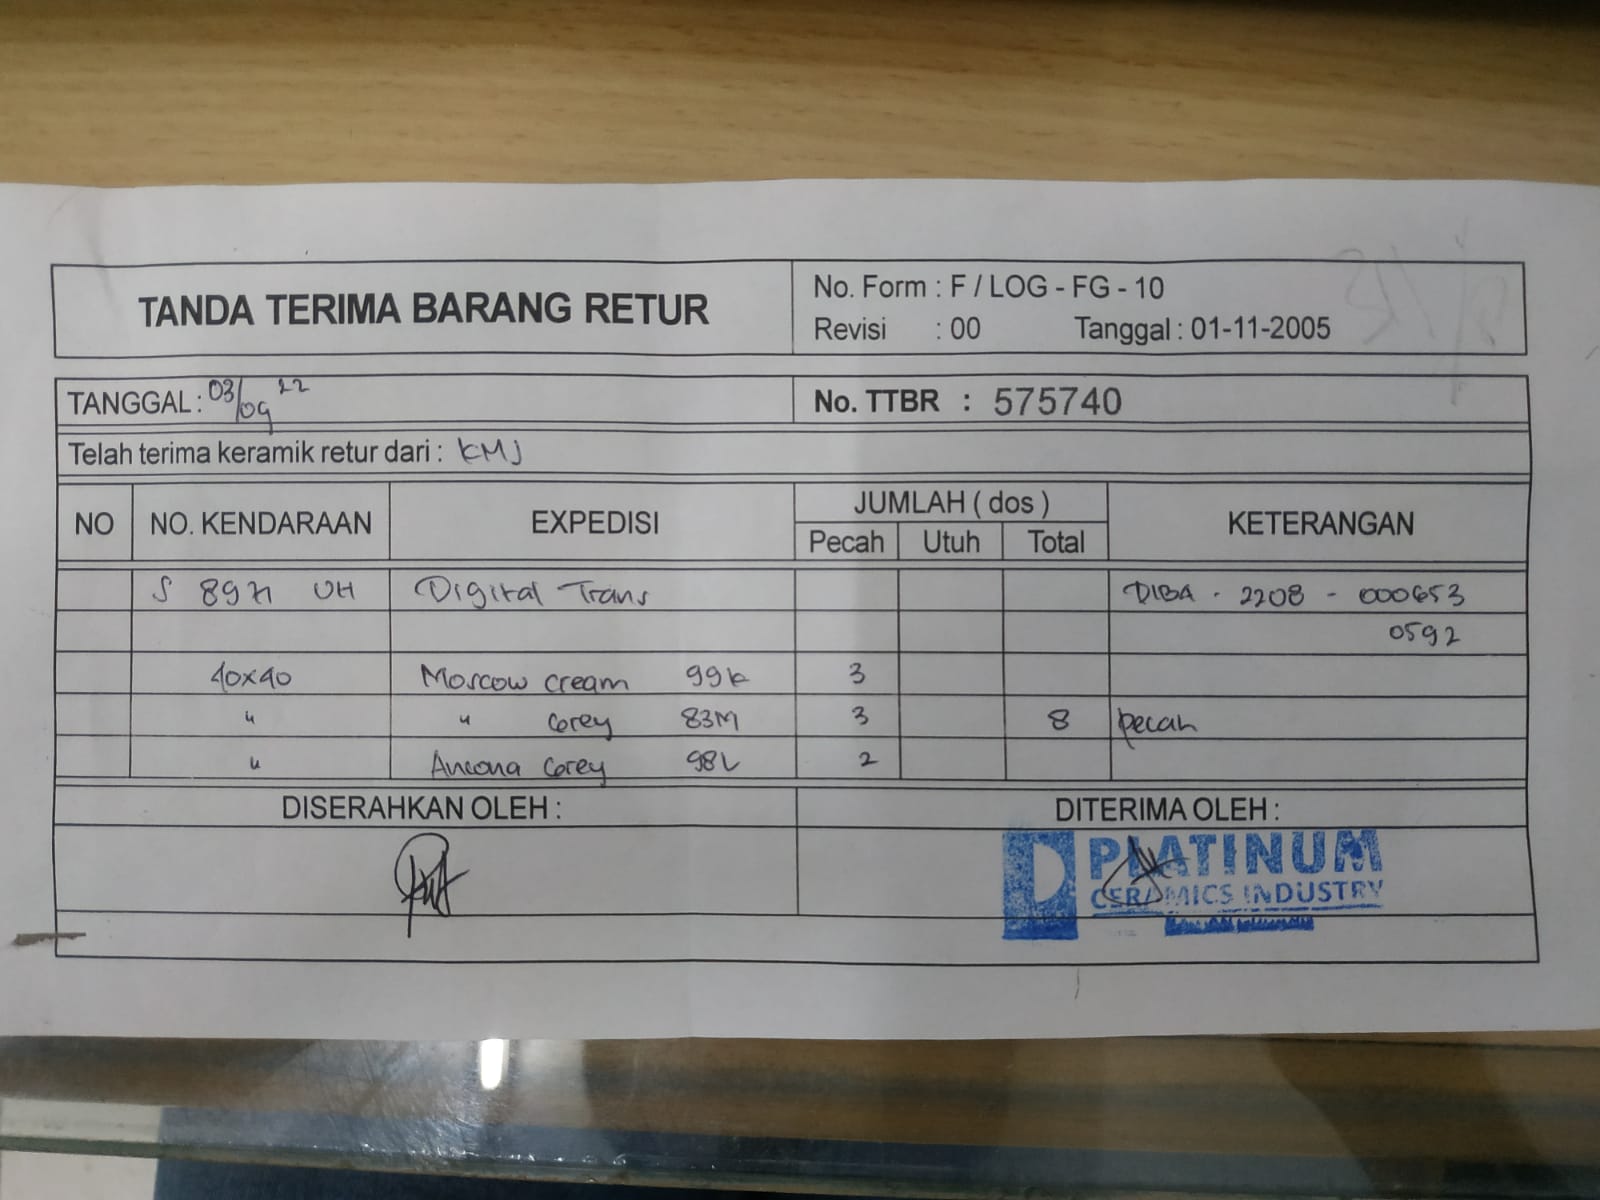 TANDA TERIMA BARANG RETUR
No. Form : F / LOG - FG - 10
Revisi : 00 Tanggal : 01-11-2005
TANGGAL : 03/09 22
No. TTBR : 575740
Telah terima keramik retur dari : KMJ
NO NO. KENDARAAN EXPEDISI JUMLAH ( dos ) KETERANGAN
Pecah Utuh Total
S UH Digital Trans DIBA - 2208 - 000653
0592
40x40 Moscow cream 99k 3
" " Grey 83M 3 8 pecah
" Ancona Grey 98L 2
DISERAHKAN OLEH : DITERIMA OLEH :
PLATINUM
CERAMICS INDUSTRY